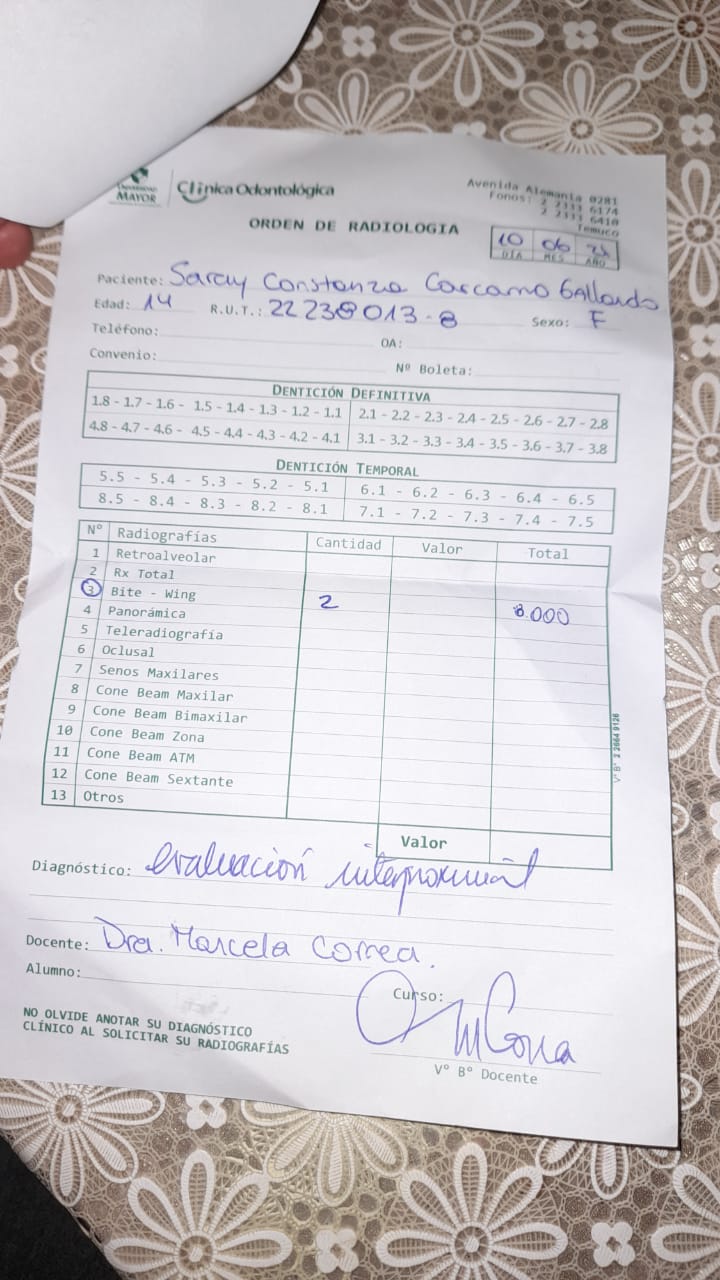 UNIVERSIDAD
MAYOR
Clínica Odontológica
Avenida Alemania 0281
Fonos: 2 2333 6174
2 2333 6410
Temuco
ORDEN DE RADIOLOGIA
10 06
DÍA MES AÑO
Paciente: Saray Constanza Carcamo Gallardo
Edad: 14 R.U.T.: 22238013-8 Sexo: F
Teléfono: OA:
Convenio: Nº Boleta:
DENTICIÓN DEFINITIVA
1.8 - 1.7 - 1.6 - 1.5 - 1.4 - 1.3 - 1.2 - 1.1 2.1 - 2.2 - 2.3 - 2.4 - 2.5 - 2.6 - 2.7 - 2.8
4.8 - 4.7 - 4.6 - 4.5 - 4.4 - 4.3 - 4.2 - 4.1 3.1 - 3.2 - 3.3 - 3.4 - 3.5 - 3.6 - 3.7 - 3.8
DENTICIÓN TEMPORAL
5.5 - 5.4 - 5.3 - 5.2 - 5.1 6.1 - 6.2 - 6.3 - 6.4 - 6.5
8.5 - 8.4 - 8.3 - 8.2 - 8.1 7.1 - 7.2 - 7.3 - 7.4 - 7.5
Nº Radiografías Cantidad Valor Total
1 Retroalveolar
2 Rx Total
3 Bite - Wing 2 8.000
4 Panorámica
5 Teleradiografía
6 Oclusal
7 Senos Maxilares
8 Cone Beam Maxilar
9 Cone Beam Bimaxilar
10 Cone Beam Zona
11 Cone Beam ATM
12 Cone Beam Sextante
13 Otros
Vº Bº 2 2664 9126
Valor
Diagnóstico: evaluación interproximal
Docente: Dra. Marcela Correa.
Alumno: Curso:
NO OLVIDE ANOTAR SU DIAGNÓSTICO
CLÍNICO AL SOLICITAR SU RADIOGRAFÍAS
Vº Bº Docente